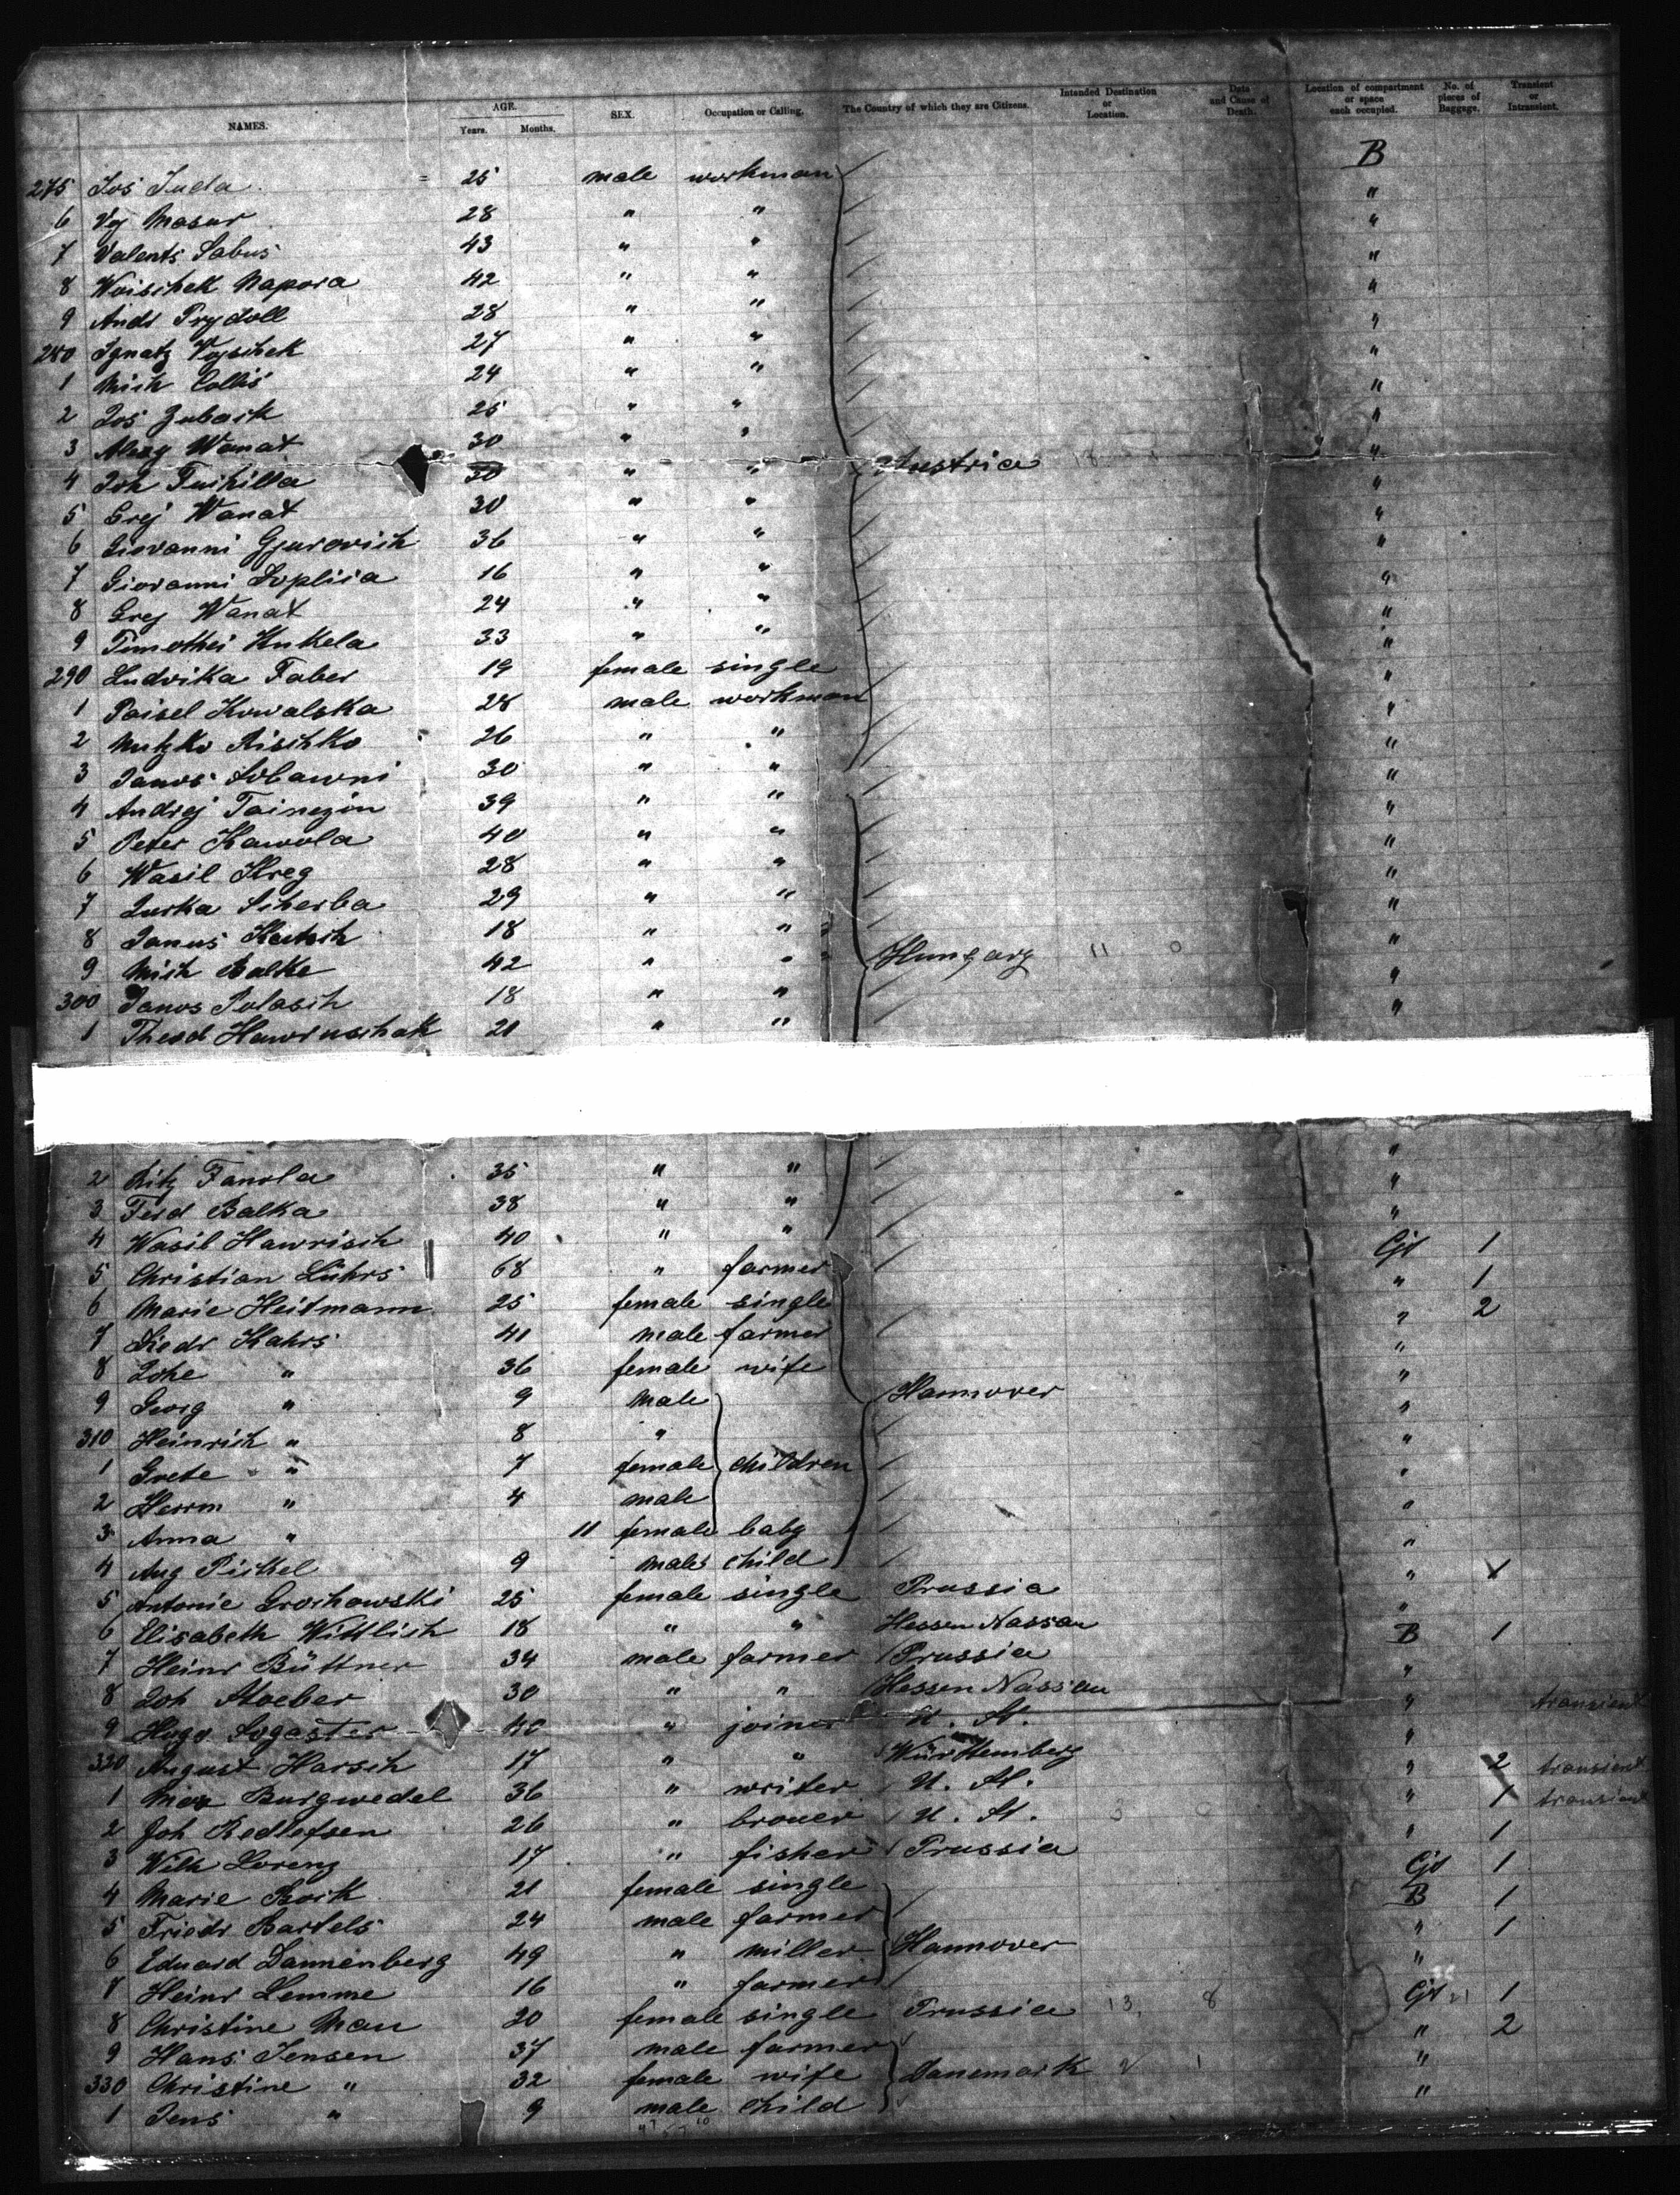 NAMES. AGE. Years. Months. SEX. Occupation or Calling. The Country of which they are Citizens. Intended Destination or Location. Date and Cause of Death. Location of compartment or space each occupied. No. of pieces of Baggage. Transient or Intransient.
275 Jos Juda 25 male workman B
6 Voj Masur 28 " " "
7 Valents Sabus 43 " " "
8 Woischek Napora 42 " " "
9 Andr Prydoll 28 " " "
280 Ignatz Vojschek 27 " " "
1 Mich Collis 24 " " "
2 Jos Zuback 25 " " "
3 Wanat 30 " " "
4 Joh Tuchilla 30 " " Austria "
5 Grej Wanat 30 " " "
6 Giovanni Gjurovich 36 " " "
7 Giovanni Soplica 16 " " "
8 Grej Wanat 24 " " "
9 Timothei Kukela 33 " " "
290 Ludvika Faber 19 female single "
1 Paisel Kowalska 28 male workman "
2 Mutzko Rischko 26 " " "
3 Janos 30 " " "
4 Andrej 39 " " "
5 Peter Kawola 40 " " "
6 Wasil Kreg 28 " " "
7 Jurka Scherba 29 " " "
8 Janus 18 " " "
9 Mich Balke 42 " " Hungary 11 0 "
300 Janos Polasch 18 " " "
1 Theod Hawruschak 21 " "
2 Ritz Fanola 35 " " "
3 Ferd Balka 38 " " "
4 Wasil Hawrisch 40 " " "
5 Christian Lührs 68 " farmer 1
6 Marie Heitmann 25 female single " 1
7 Diedr Kahrs 41 male farmer " 2
8 Johe " 36 female wife "
9 Georg " 9 male Hannover "
310 Heinrich " 8 " "
1 Grete " 7 female children "
2 Herrm " 4 male "
3 Anna " 11 female baby "
4 Aug Pickel 9 male child "
5 Antonie Grochowski 25 female single Prussia "
6 Elisabeth Wittlich 18 " " Hessen Nassau "
7 Heinr Büttner 34 male farmer Prussia B 1
8 Joh Stoeber 30 " " Hessen Nassau "
9 Hugo Sogaster 40 " joiner U. St. " transient
320 August Harsch 17 " " Württemberg "
1 Max Burgwedel 36 " writer U. St. " 2 transient
2 Joh Redlefsen 26 " brouer U. St. " 1 transient
3 Wilh Lorenz 17 " fisher Prussia " 1
4 Marie Bock 21 female single 1
5 Friedr Bartels 24 male farmer B 1
6 Eduard Dannenberg 49 " miller Hannover " 1
7 Heinr Lemme 16 " farmer "
8 Christine Mau 20 female single Prussia 13 8 1
9 Hans Jensen 37 male farmer " 2
330 Christine " 32 female wife Danemark 2 1 "
1 Jens " 9 male child "